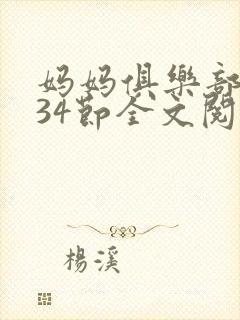 妈妈俱樂部
34節全文閱
楊溪